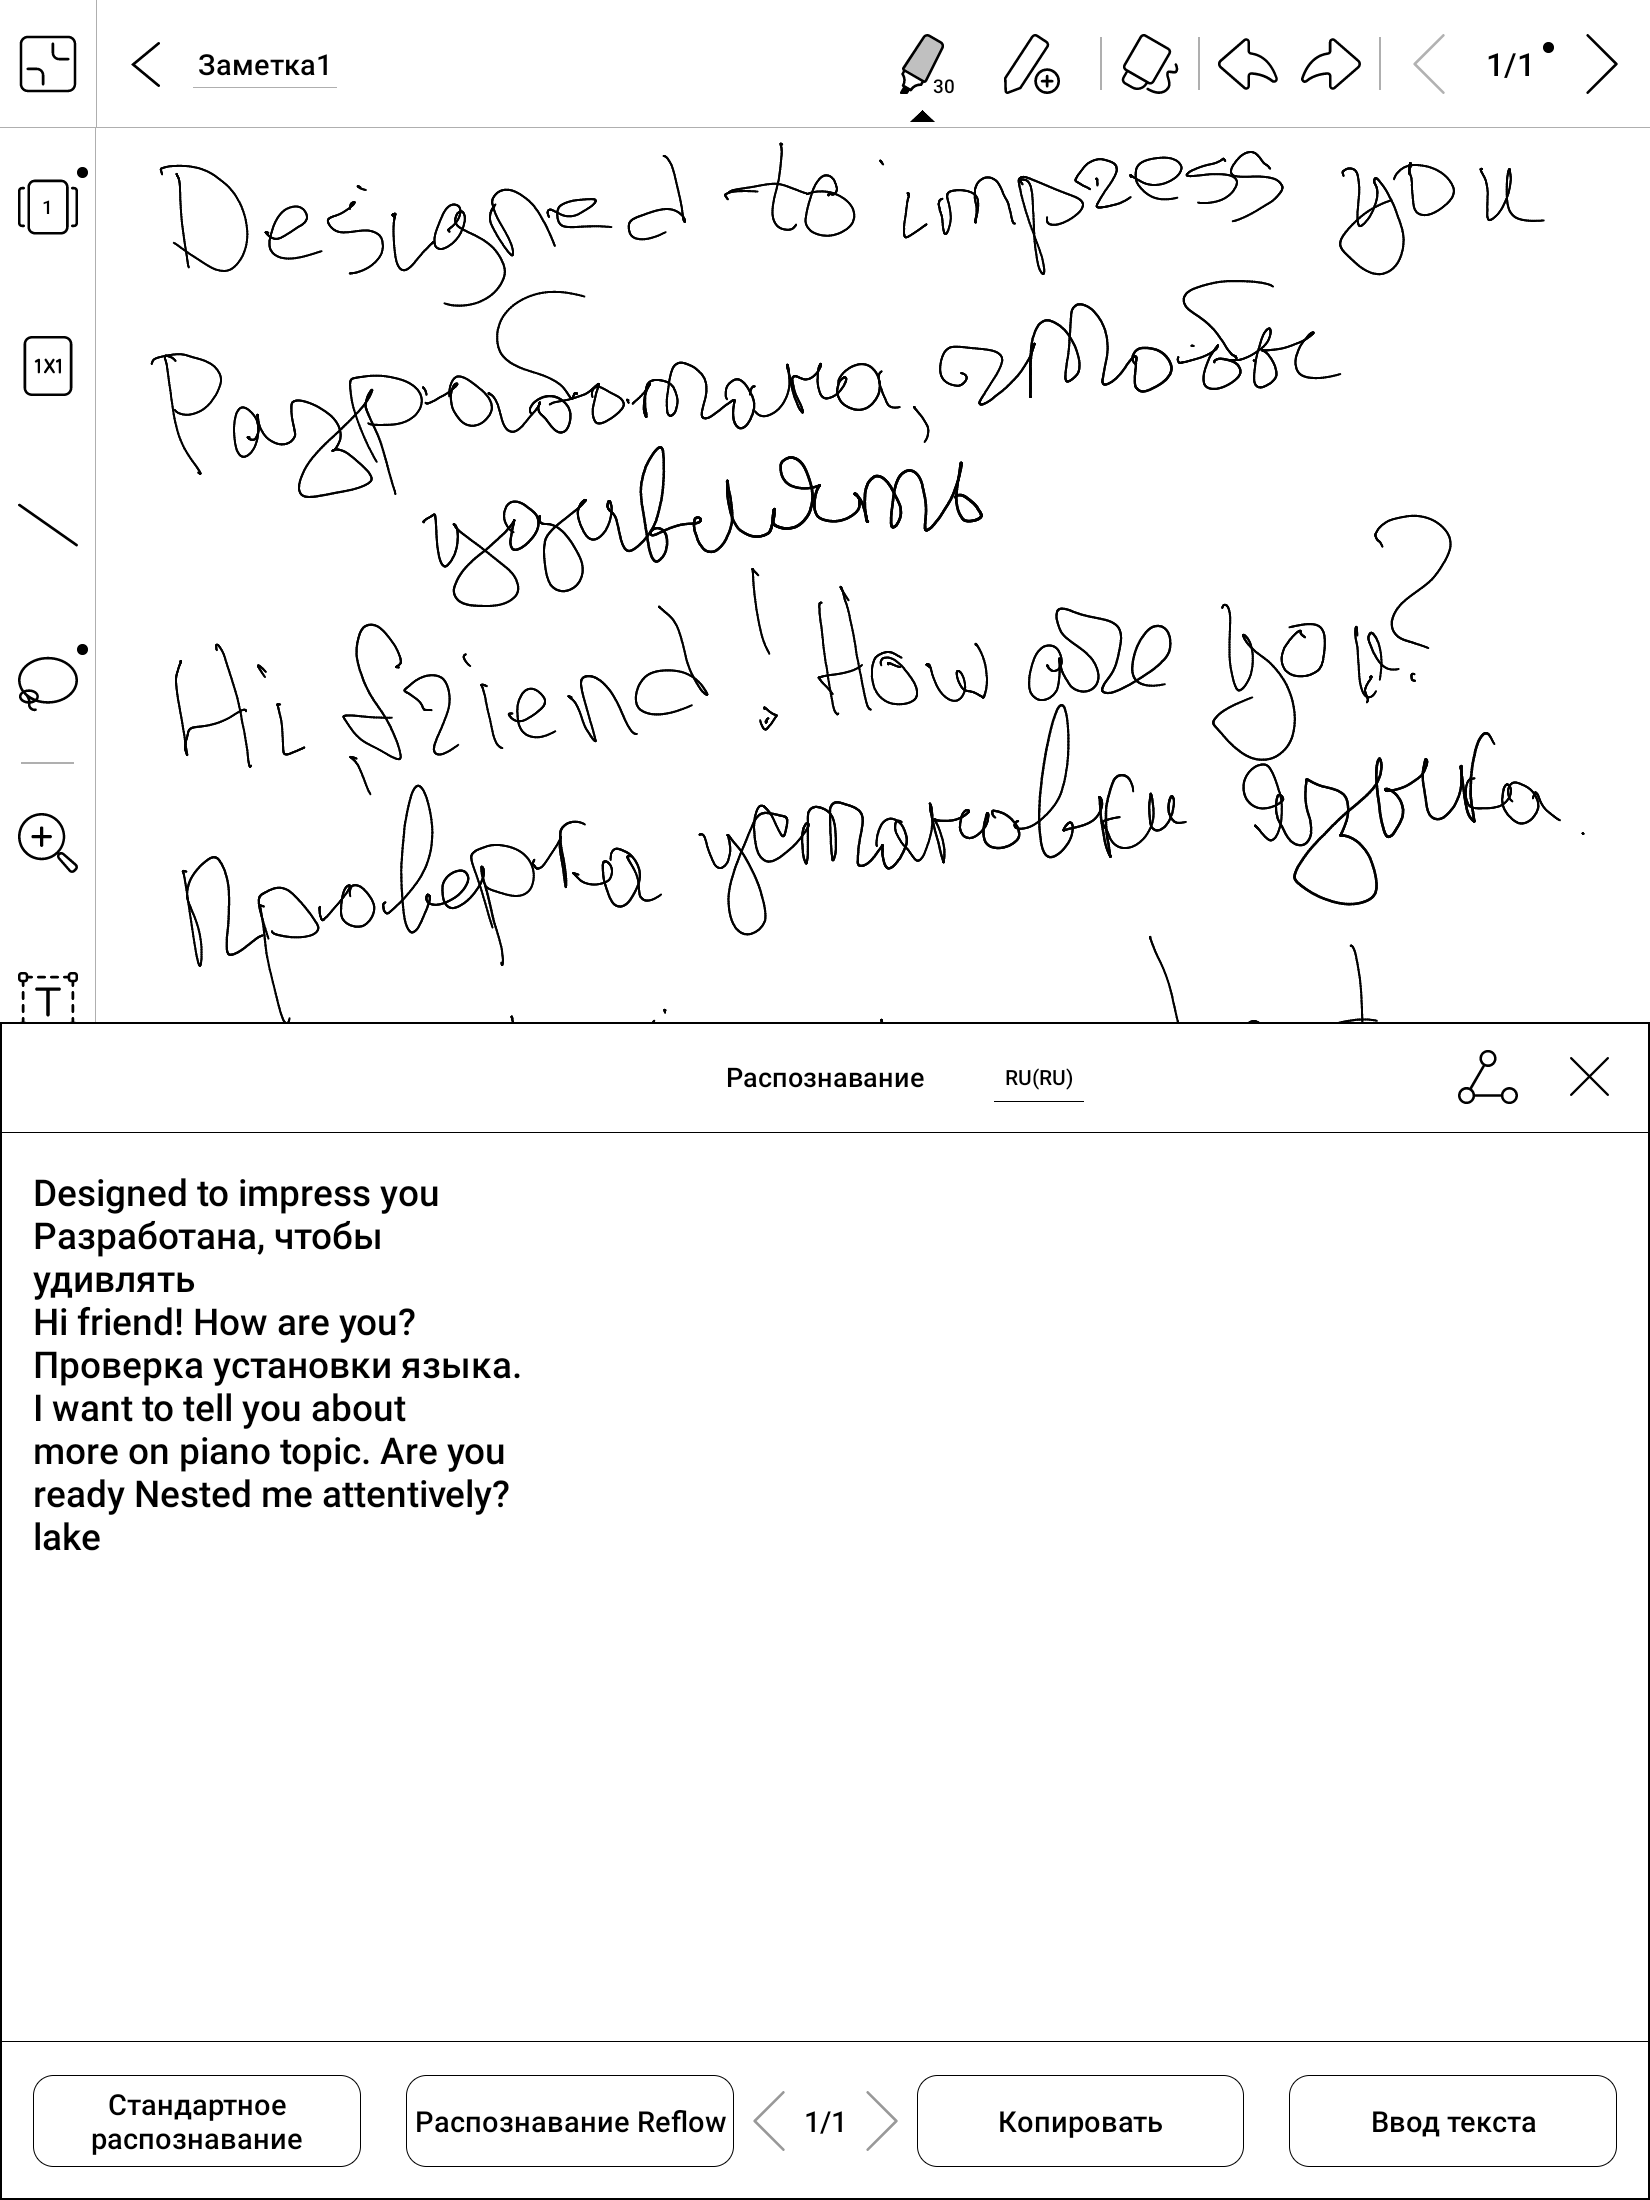 Заметка1
30
1/1
1
1X1
T
Designed to impress you
Разработана, чтобы
удивлять
Hi, friend! How are you?
Проверка установки языка.
Распознавание RU(RU)
Designed to impress you
Разработана, чтобы
удивлять
Hi friend! How are you?
Проверка установки языка.
I want to tell you about
more on piano topic. Are you
ready Nested me attentively?
lake
Стандартное
распознавание
Распознавание Reflow
1/1
Копировать
Ввод текста